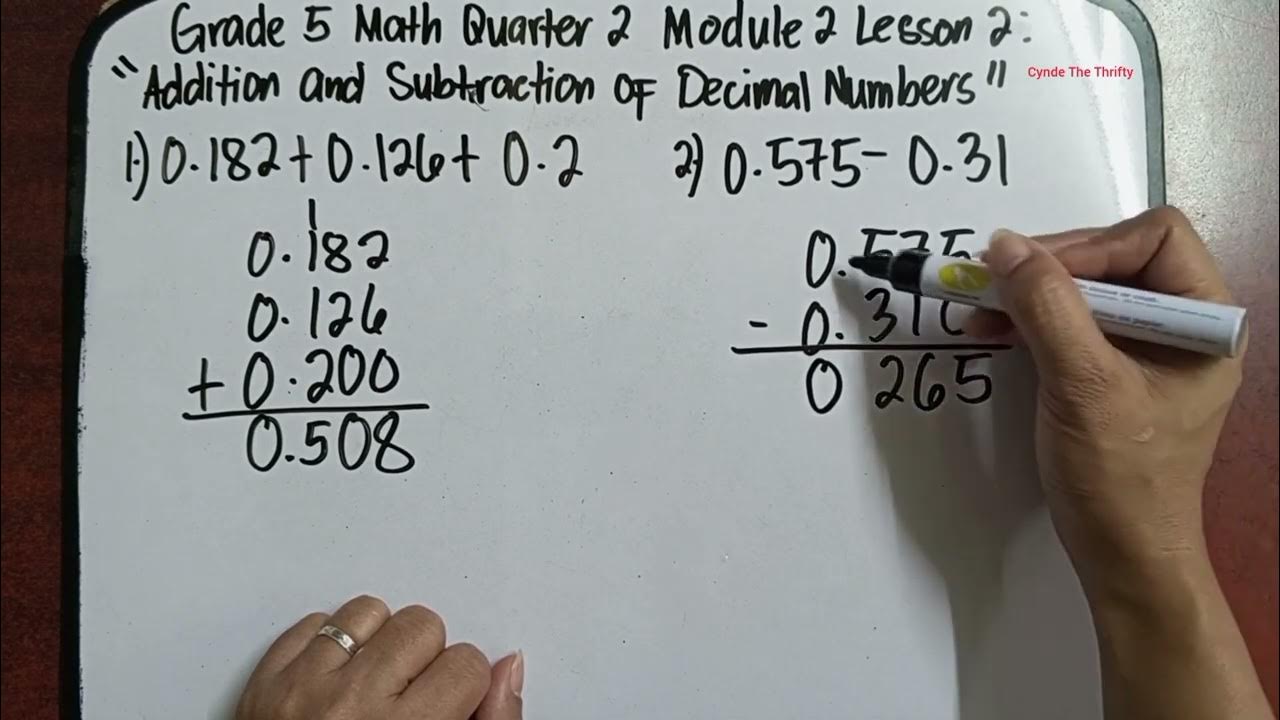 Grade 5 Math Quarter 2 Module 2 Lesson 2:
"Addition and Subtraction of Decimal Numbers"
Cynde The Thrifty
1.) 0.182 + 0.126 + 0.2
1
0.182
0.126
+ 0.200
0.508
2.) 0.575 - 0.31
0.575
- 0.31
0 265